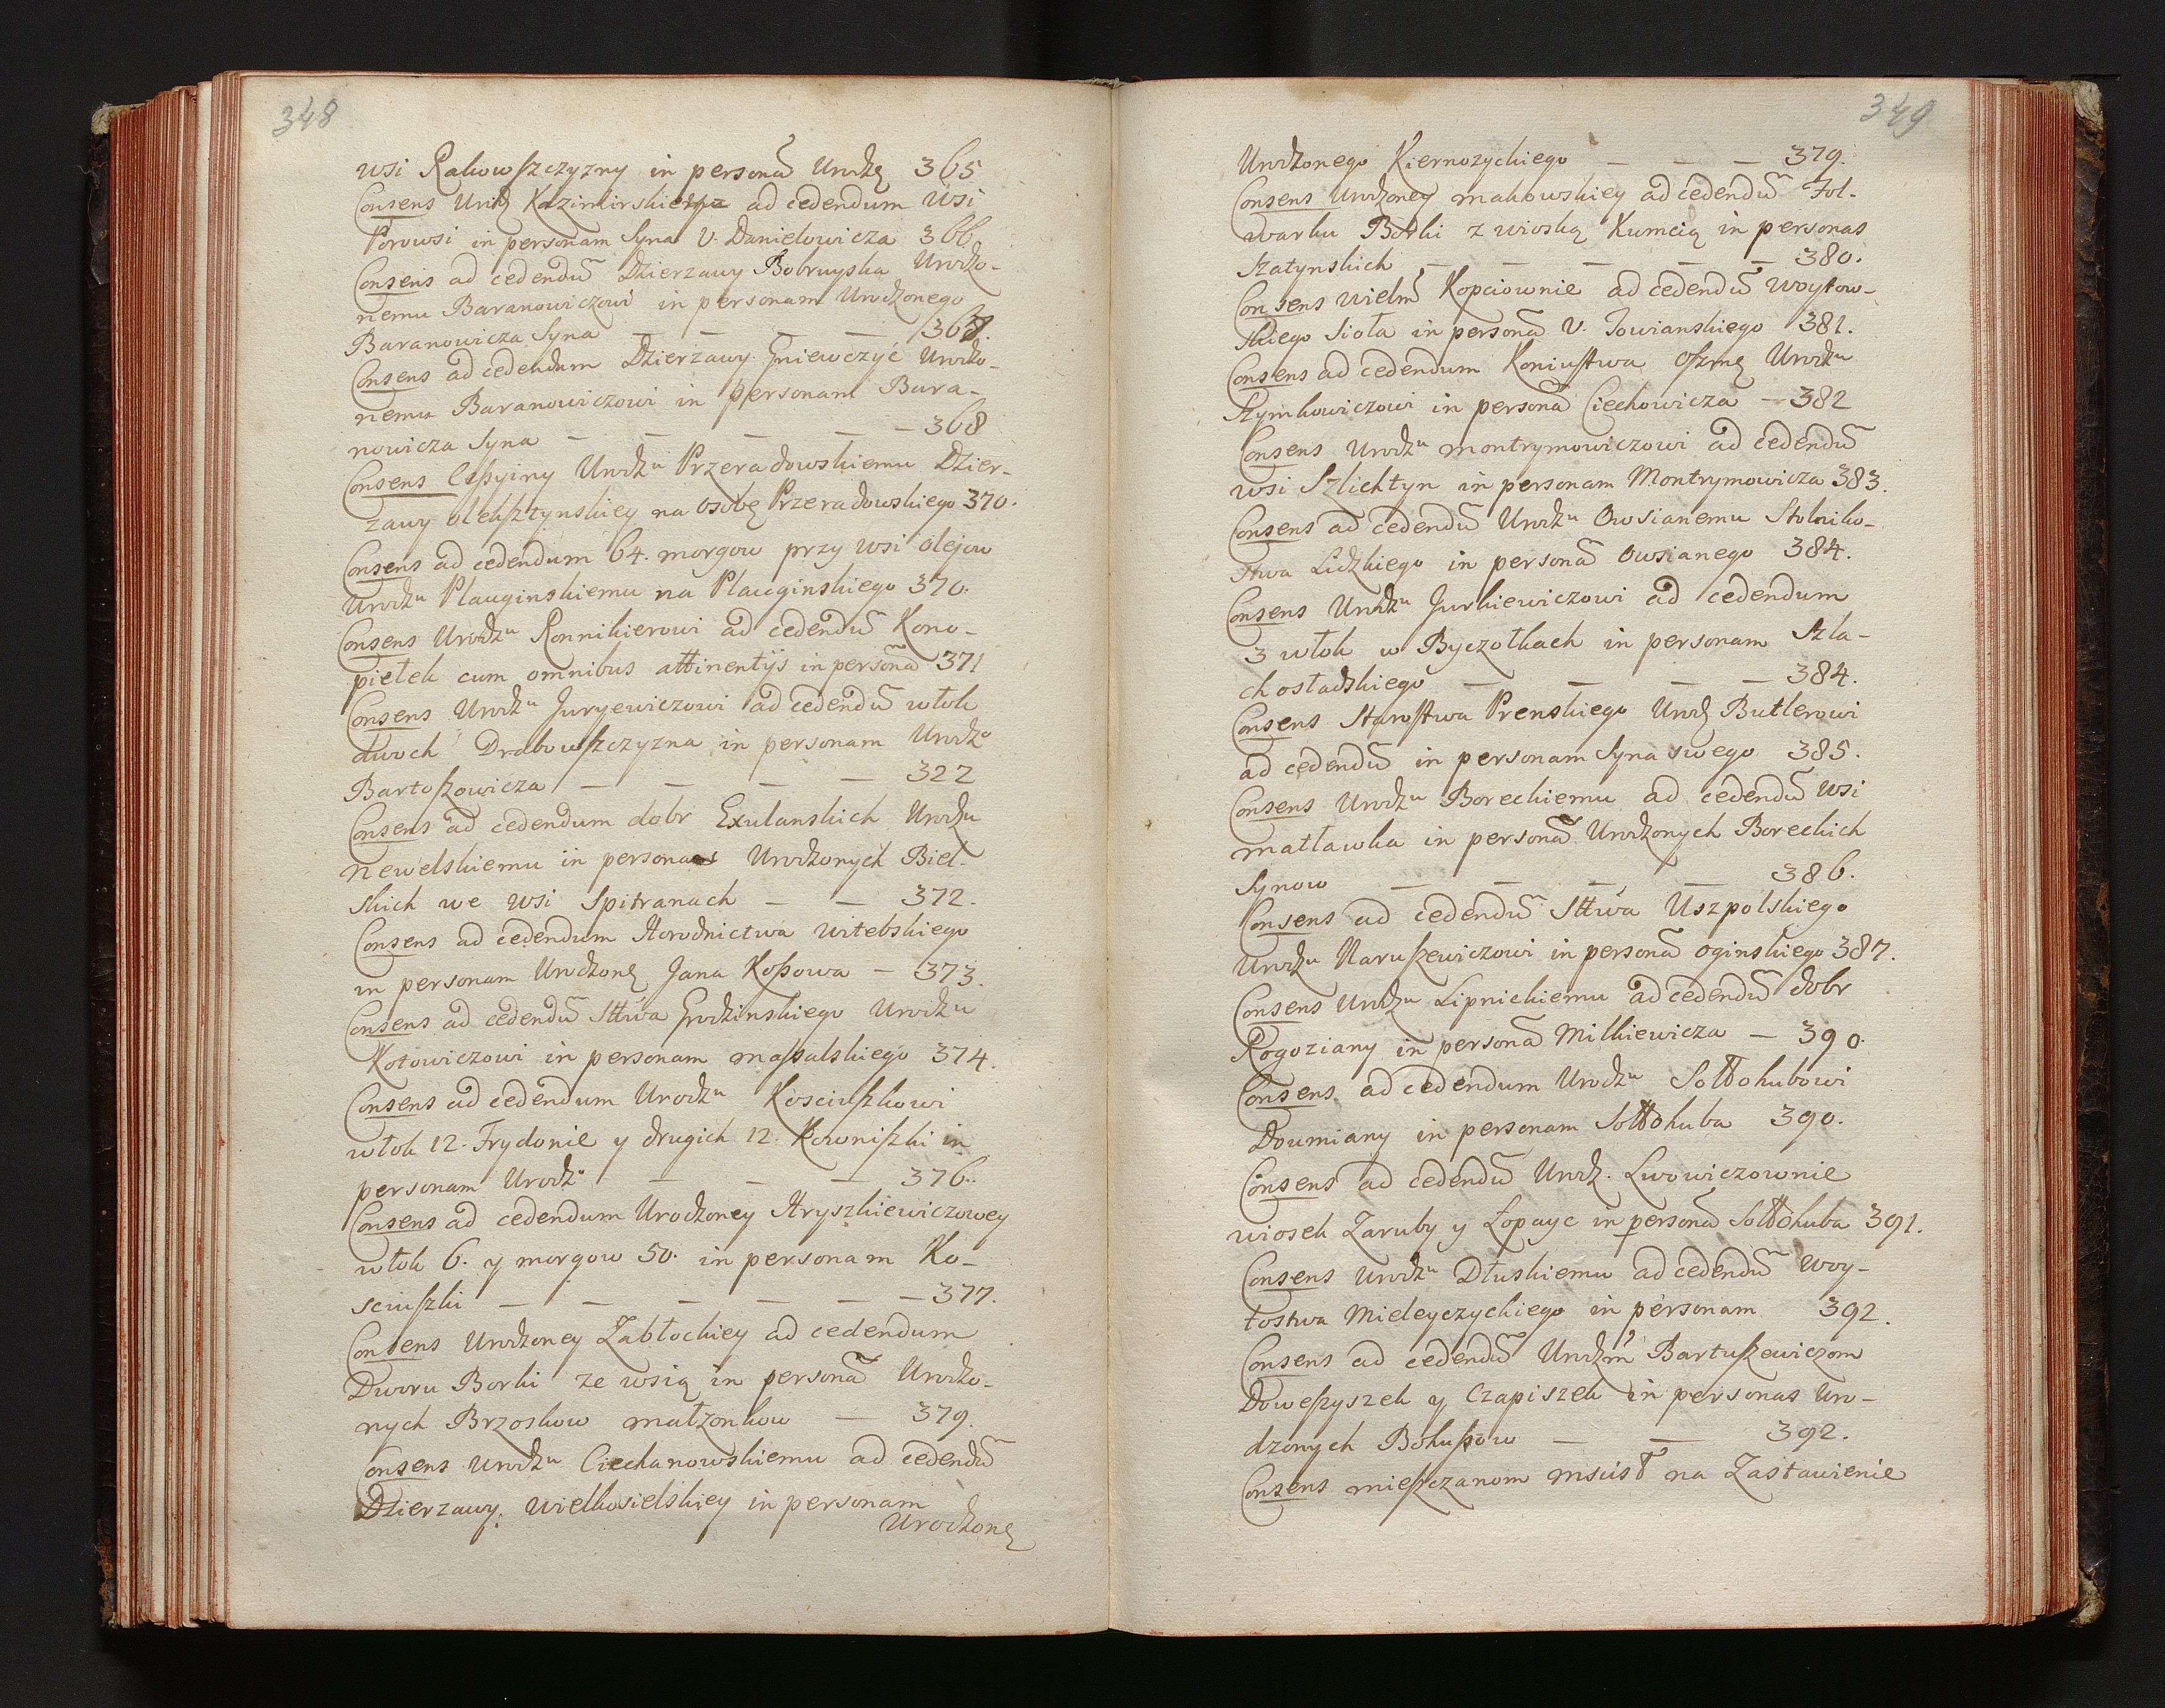 348
wsi Rakowszczyzny in personã Urodzę 365
Consens Urodz Kazimirskiemu ad cedendum wsi
Porowsi in personam Syna U. Danielowicza 366
Consens ad cedendũ Dzierzawy Bobruyska Urodzo-
nemu Baranowiczowi in personam Urodzonego
Baranowicza Syna — — — — 367.
Consens ad cedendum Dzierzawy Gniewczyć Urodzo-
nemu Baranowiczowi in personam Bara-
nowicza Syna — — — — — 368
Consens Cessyiny Urodzu Przeradowskiemu Dzier-
zawy olehsztynskiey na osobę Przeradowskiego 370.
Consens ad cedendum 64. morgow przy wsi olejow
Urodzu Plauginskiemu na Plauginskiego 370.
Consens Urodzu Ronnikierowi ad cedendũ Kono-
piełek cum omnibus attinentijs in personã 371
Consens Urodzu Juryewiczowi ad cedendũ włok
dwoch Drabowszczyzna in personam Urodzo
Bartoszowicza — — — — 322
Consens ad cedendum dobr Exulanskich Urodzu
newelskiemu in personas Urodzonych Biel-
skich we wsi Spitranach — — 372.
Consens ad cedendum Horodnictwa witebskiego
in personam Urodzonę Jana Kossowa — 373.
Consens ad cedendũ Sttwa Grodzinskiego Urodzu
Kotowiczowi in personam massalskiego 374.
Consens ad cedendum Urodzu Kosciuszkowi
włok 12. Frydonie y drugich 12. Kowniszki in
personam Urodzo — — — 376.
Consens ad cedendum Urodzoney Hryszkiewiczowey
włok 6. y morgow 50. in personam Ko-
sciuszki — — — — — — 377.
Consens Urodzoney Zabłockiey ad cedendum
Dworu Borki ze wsią in personã Urodzo-
nych Brzoskow małzonkow — 379.
Consens Urodzu Ciechanowskiemu ad cedendũ
Dzierzawy. wielkosielskiey in personam
Urodzonę
349
Urodzonego Kiernozyckiego — — — 379.
Consens Urodzoney makowskiey ad cedendũ Fol-
warku Borki z wioską Kumcią in personas
Szatynskich — — — — — 380.
Consens wielm̃ Kopciownie ad cedendũ woytow-
skiego Sioła in personã U. Jowianskiego 381.
Consens ad cedendum Koniustwa Oszmę Urodzu
Szymkowiczowi in personã Ciechowicza — 382
Consens Urodzu montrymowiczowi ad cedendũ
wsi Szlichtyn in personam Montrymowicza 383.
Consens ad cedendũ Urodzu Owsianemu Stolniko-
stwa Lidzkiego in personã Owsianego 384.
Consens Urodzu Jurkiewiczowi ad cedendum
3 włok w Byczołkach in personam Szla-
chostadskiego — — — — 384.
Consens Starostwa Prenskiego Urodz Butlerowi
ad cedendũ in personam Syna swego 385.
Consens Urodzu Boreckiemu ad cedendũ wsi
matławka in personã Urodzonych Boreckich
Synow — — — — 386.
Consens ad cedendũ Sttwa Uszpolskiego
Urodzu Naruszewiczowi in personã oginskiego 387.
Consens Urodzu Lipnickiemu ad cedendũ dobr
Rogoziany in personã Milkiewicza — 390.
Consens ad cedendum Urodzu Sołłohubowi
Doumiany in personam Sołłohuba 390.
Consens ad cedendũ Urodz. Lwowiczownie
wiosek Zaruby y Łopayc in personã Sołłohuba 391.
Consens Urodzu Dłuskiemu ad cedendũ woy-
tostwa Mieleyczyckiego in personam 392.
Consens ad cedendũ Urodzm̃ Bartuszewiczom
Doweszyszek y Czapiszek in personas Uro-
dzonych Bohuszow — — 392.
Consens mieszczanom mscisł na Zastawienie